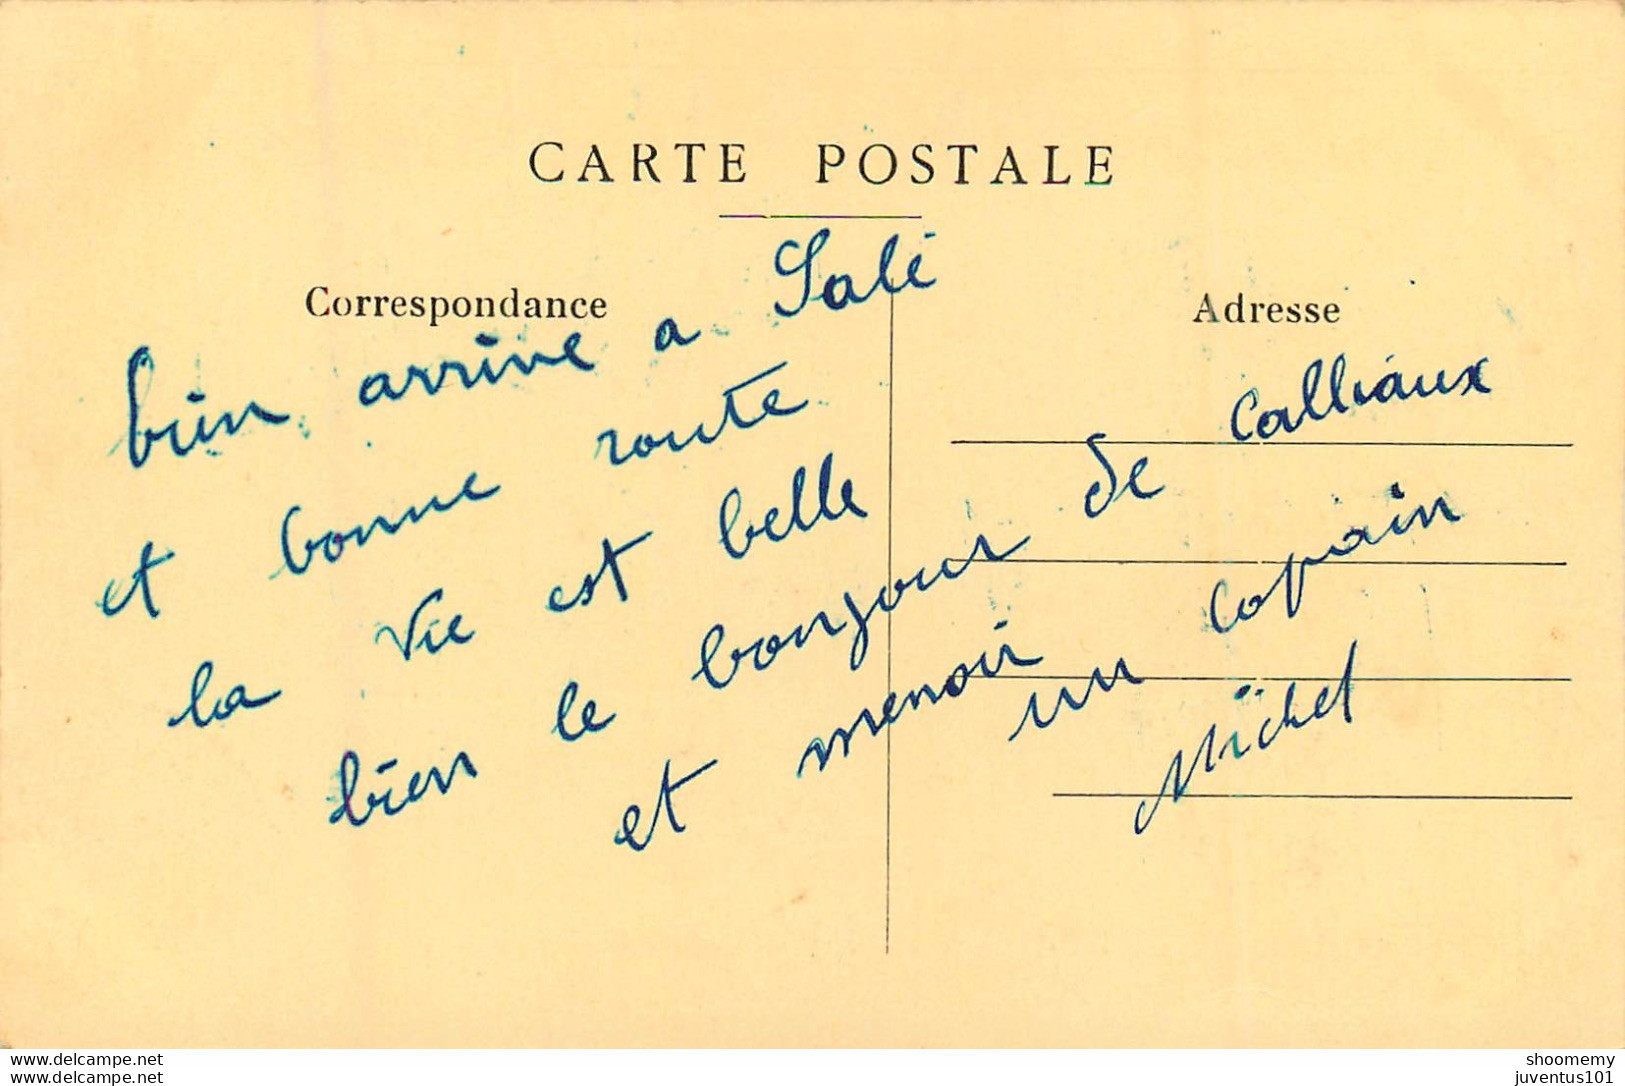 CARTE POSTALE
Correspondance
Adresse
bien arrive a Salé
et bonne route
la vie est belle
bien le bonjour de Calliaux
et menoir un copain
Michel
www.delcampe.net
www.delcampe.net
shoomemy
juventus101